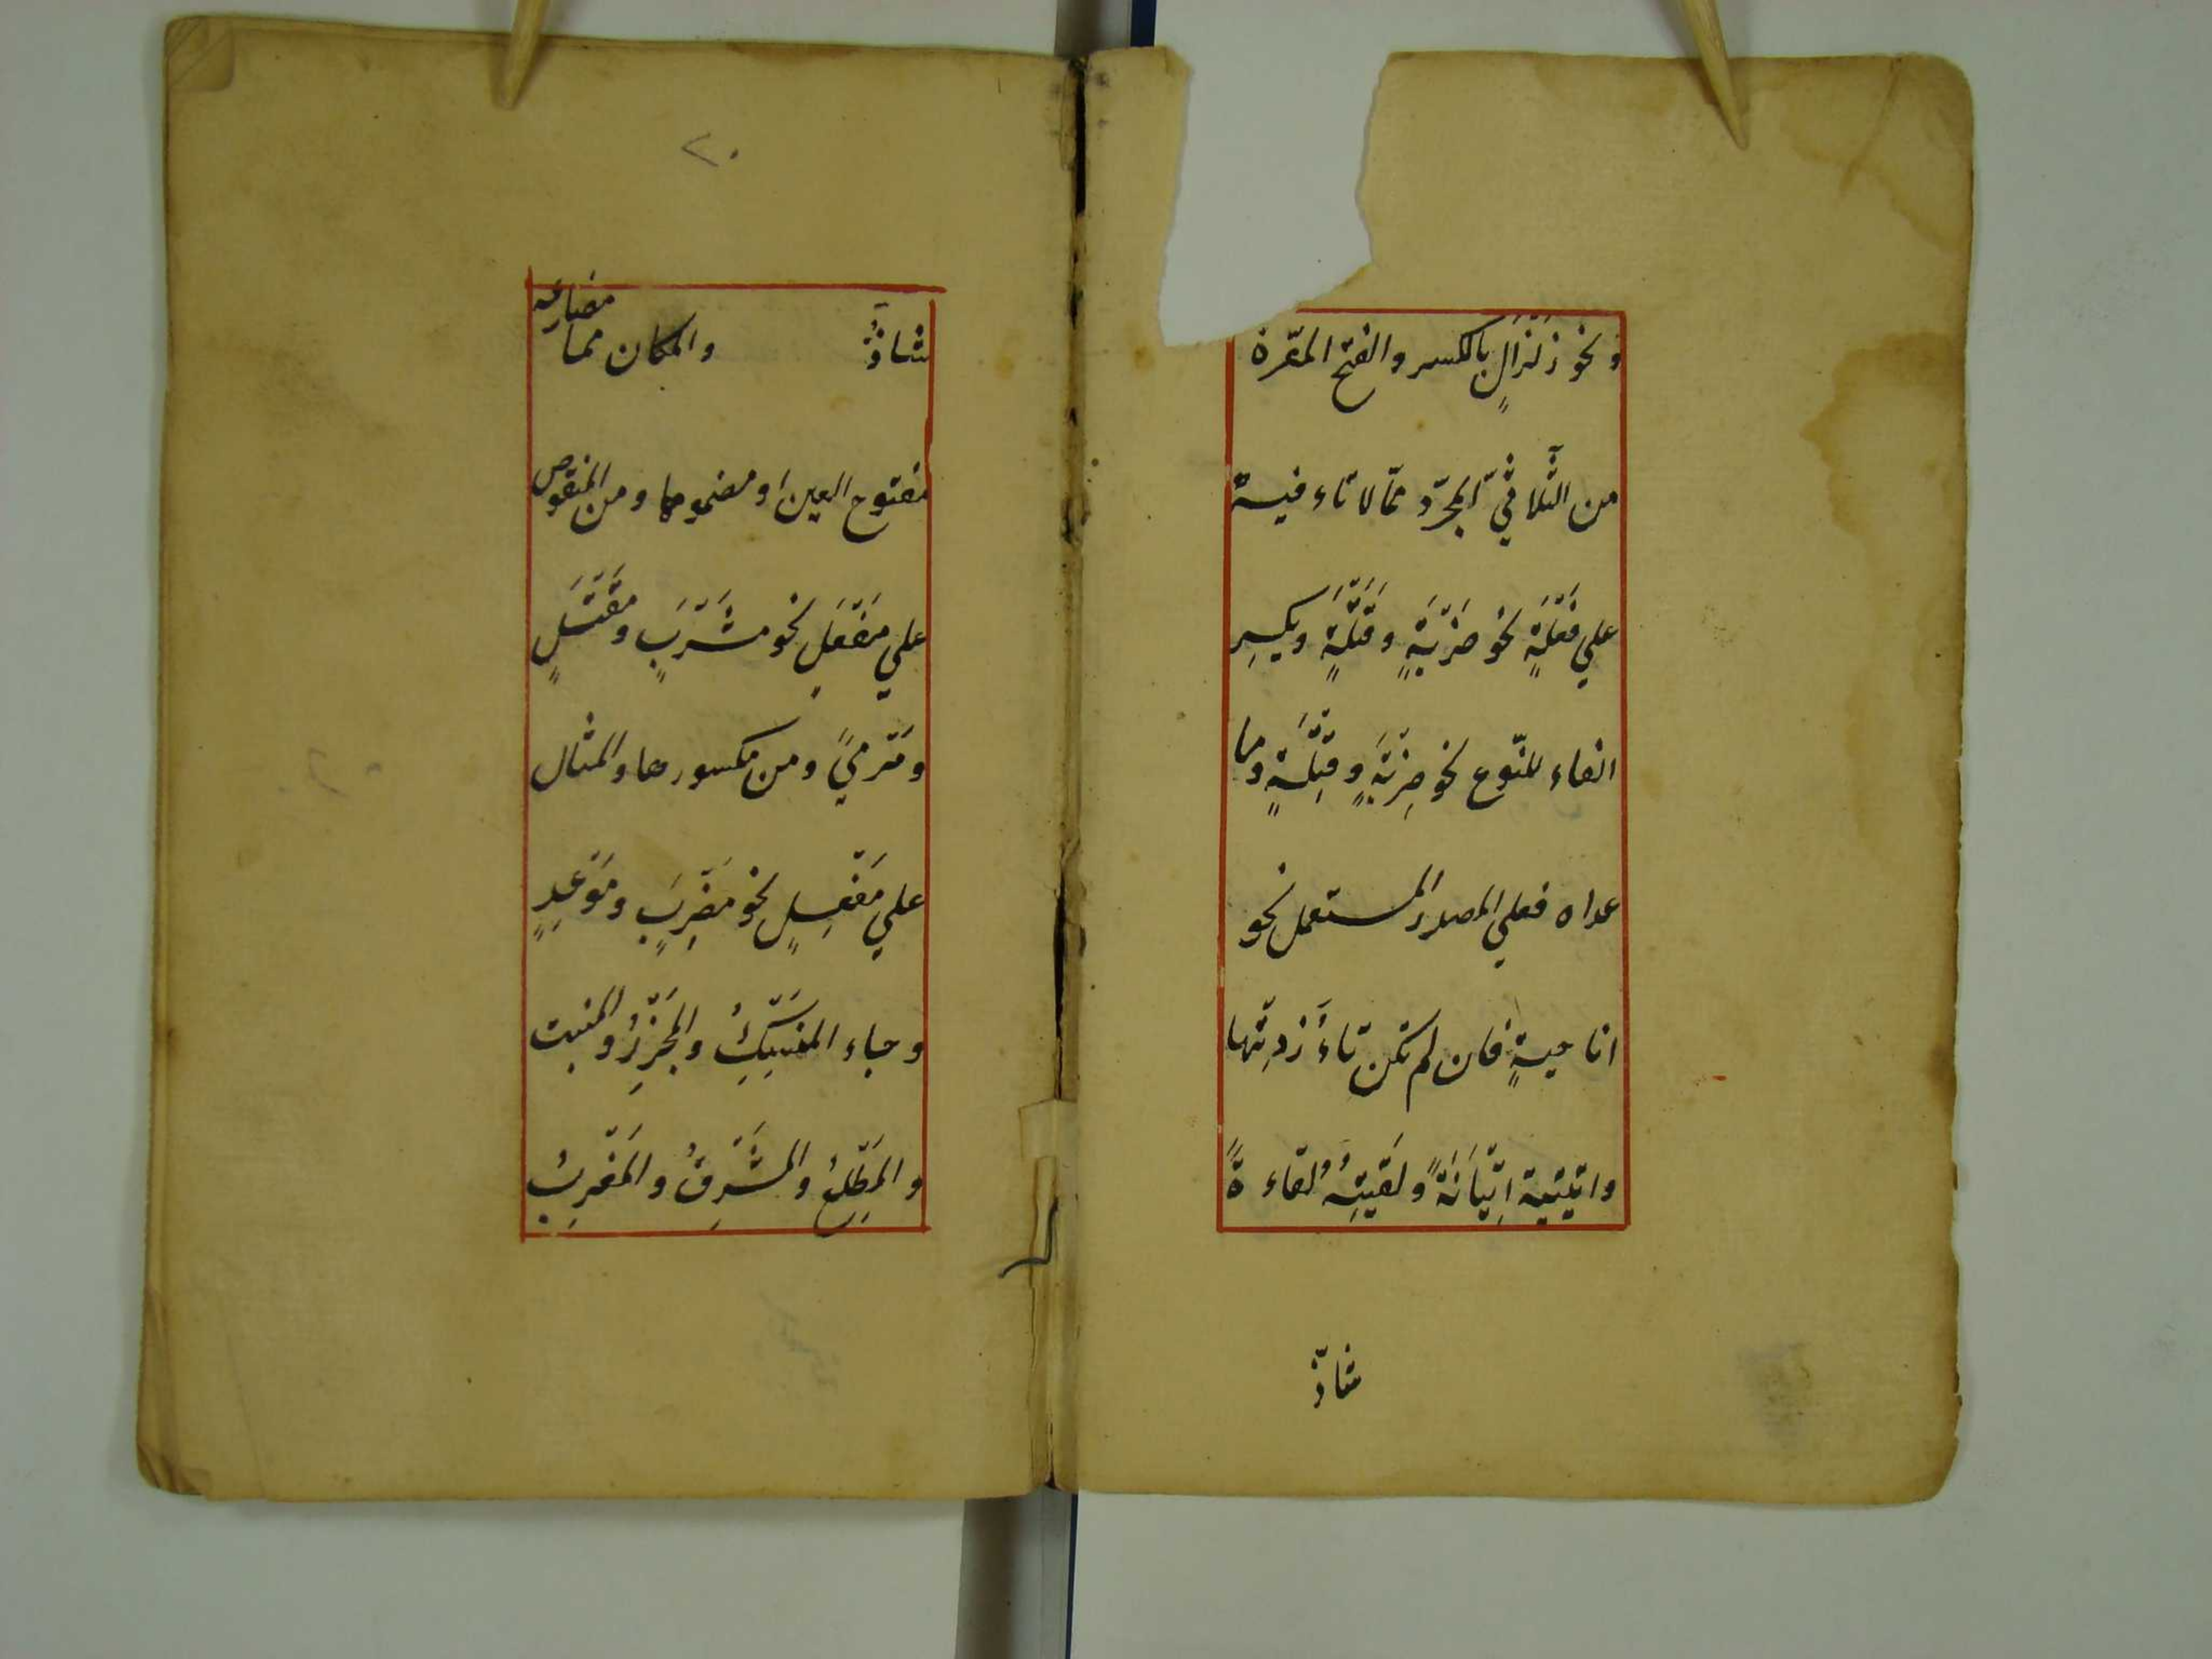 ونحو زلزال بالكسر والفتح المرّة
من الثّلاثيّ المجرّد ممّا لا تاء فيه
علي فَعْلَةٍ نحو ضَرْبَةٍ وقَتْلَةٍ وبكسر
الفاء للنّوع نحو ضِرْبَةٍ وقِتْلَةٍ وما
عداه فعلي المصدر المستعمل نحو
اناحيةٍ فان لم تكن تاءً زدتها
واتيتية اِتْيَانَةً ولَقَيتُهُ لقاءةً
شاذّ
٢٠
شاذٌّ والمكان مما مضارعه
مفتوح العين او مضمومها ومن المنقوص
علي مَفْعَلٍ نحو مَشْرَبٍ ومَقْتَلٍ
ومَرْميً ومن مكسورها والمثال
علي مَفْعِلٍ نحو مَضْرِبٍ ومَوْعِدٍ
وجاء المَنْسِكُ والمَجْزِرُ والمنبت
والمَطْلِعُ والمَشْرِقُ والمَغْرِبُ